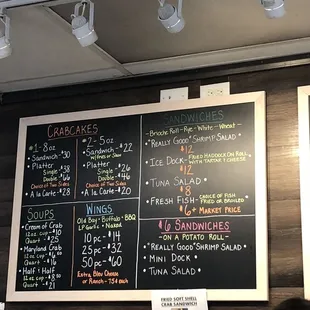 CRABCAKES
#1 - 8oz
Sandwich - $30
Platter
Single $38
Double $66
Choice of Two Sides
A la Carte - $28
#2 - 5oz
Sandwich - $22
w/ Fries or Slaw
Platter
Single $26
Double $46
Choice of Two Sides
A la Carte - $20
SOUPS
Cream of Crab
12oz cup - $10
Quart - $25
Maryland Crab
12oz cup
Quart - $16
Half & Half
12oz cup - $8
Quart - $21
WINGS
Old Bay - Buffalo - BBQ
LP Garlic - Naked
10 pc - $14
25 pc - $32
50 pc - $60
Extra Bleu Cheese
or Ranch - 75¢ each
SANDWICHES
Brioche Roll - Rye - White - Wheat
"Really Good" Shrimp Salad -
$12
Ice Dock - Fried Haddock On Roll
with Tartar & Cheese
$12
Tuna Salad -
$8
Fresh Fish - Choice of Fish
Fried or Broiled
$6 + Market Price
$6 SANDWICHES
- ON A POTATO ROLL -
"Really Good" Shrimp Salad
Mini Dock
Tuna Salad
FRIED SOFT SHELL
CRAB SANDWICH